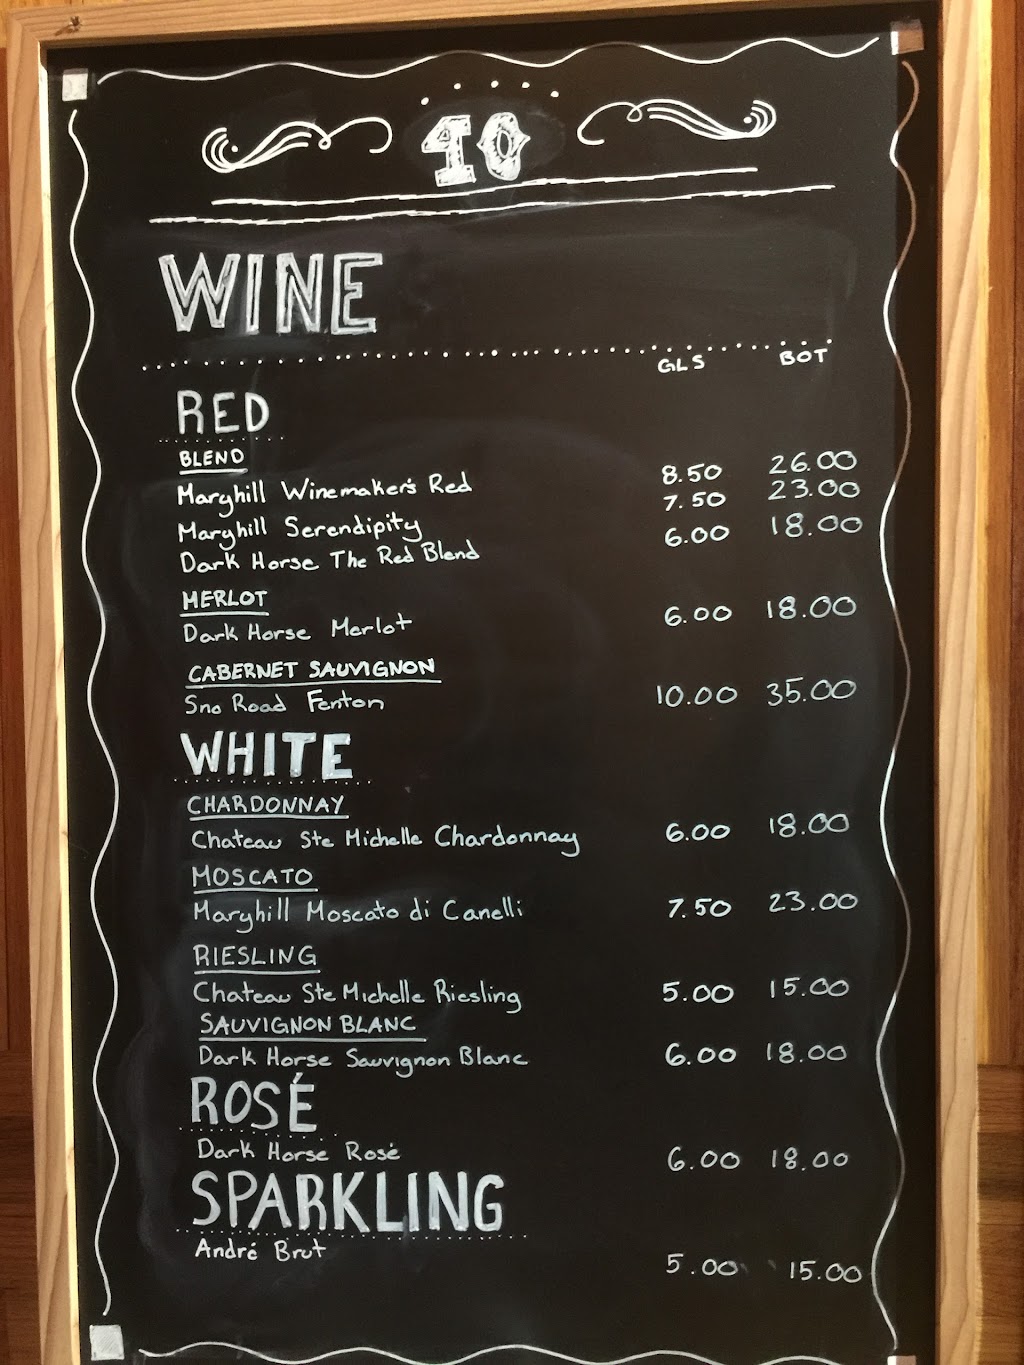 40
WINE
GLS BOT
RED
BLEND
Maryhill Winemaker's Red 8.50 26.00
Maryhill Serendipity 7.50 23.00
Dark Horse The Red Blend 6.00 18.00
MERLOT
Dark Horse Merlot 6.00 18.00
CABERNET SAUVIGNON
Sno Road Fenton 10.00 35.00
WHITE
CHARDONNAY
Chateau Ste Michelle Chardonnay 6.00 18.00
MOSCATO
Maryhill Moscato di Canelli 7.50 23.00
RIESLING
Chateau Ste Michelle Riesling 5.00 15.00
SAUVIGNON BLANC
Dark Horse Sauvignon Blanc 6.00 18.00
ROSÉ
Dark Horse Rosé 6.00 18.00
SPARKLING
André Brut 5.00 15.00